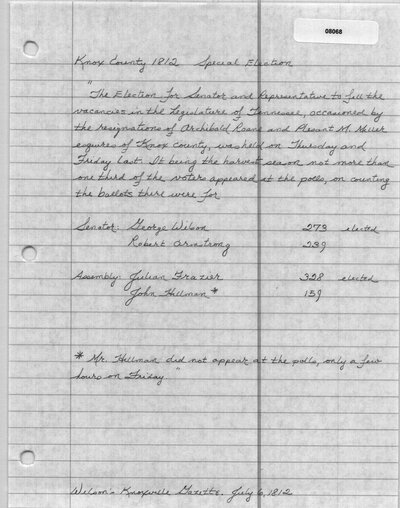 08068
Knox County 1812 Special Election
"The Election for Senator and Representative to fill the
vacancies in the Legislature of Tennessee, occasioned by
the resignations of Archibald Roane and Plesant M. Miller
esquires of Knox county, was held on Thursday and
Friday last. It being the harvest season not more than
one third of the voters appeared at the polls, on counting
the ballots there were for
Senator: George Wilson 273 elected
Robert Armstrong 239
Assembly: Julian Frazier 328 elected
John Hillman * 159
* Mr. Hillman did not appear at the polls, only a few
hours on Friday."
Wilson's Knoxville Gazette. July 6, 1812